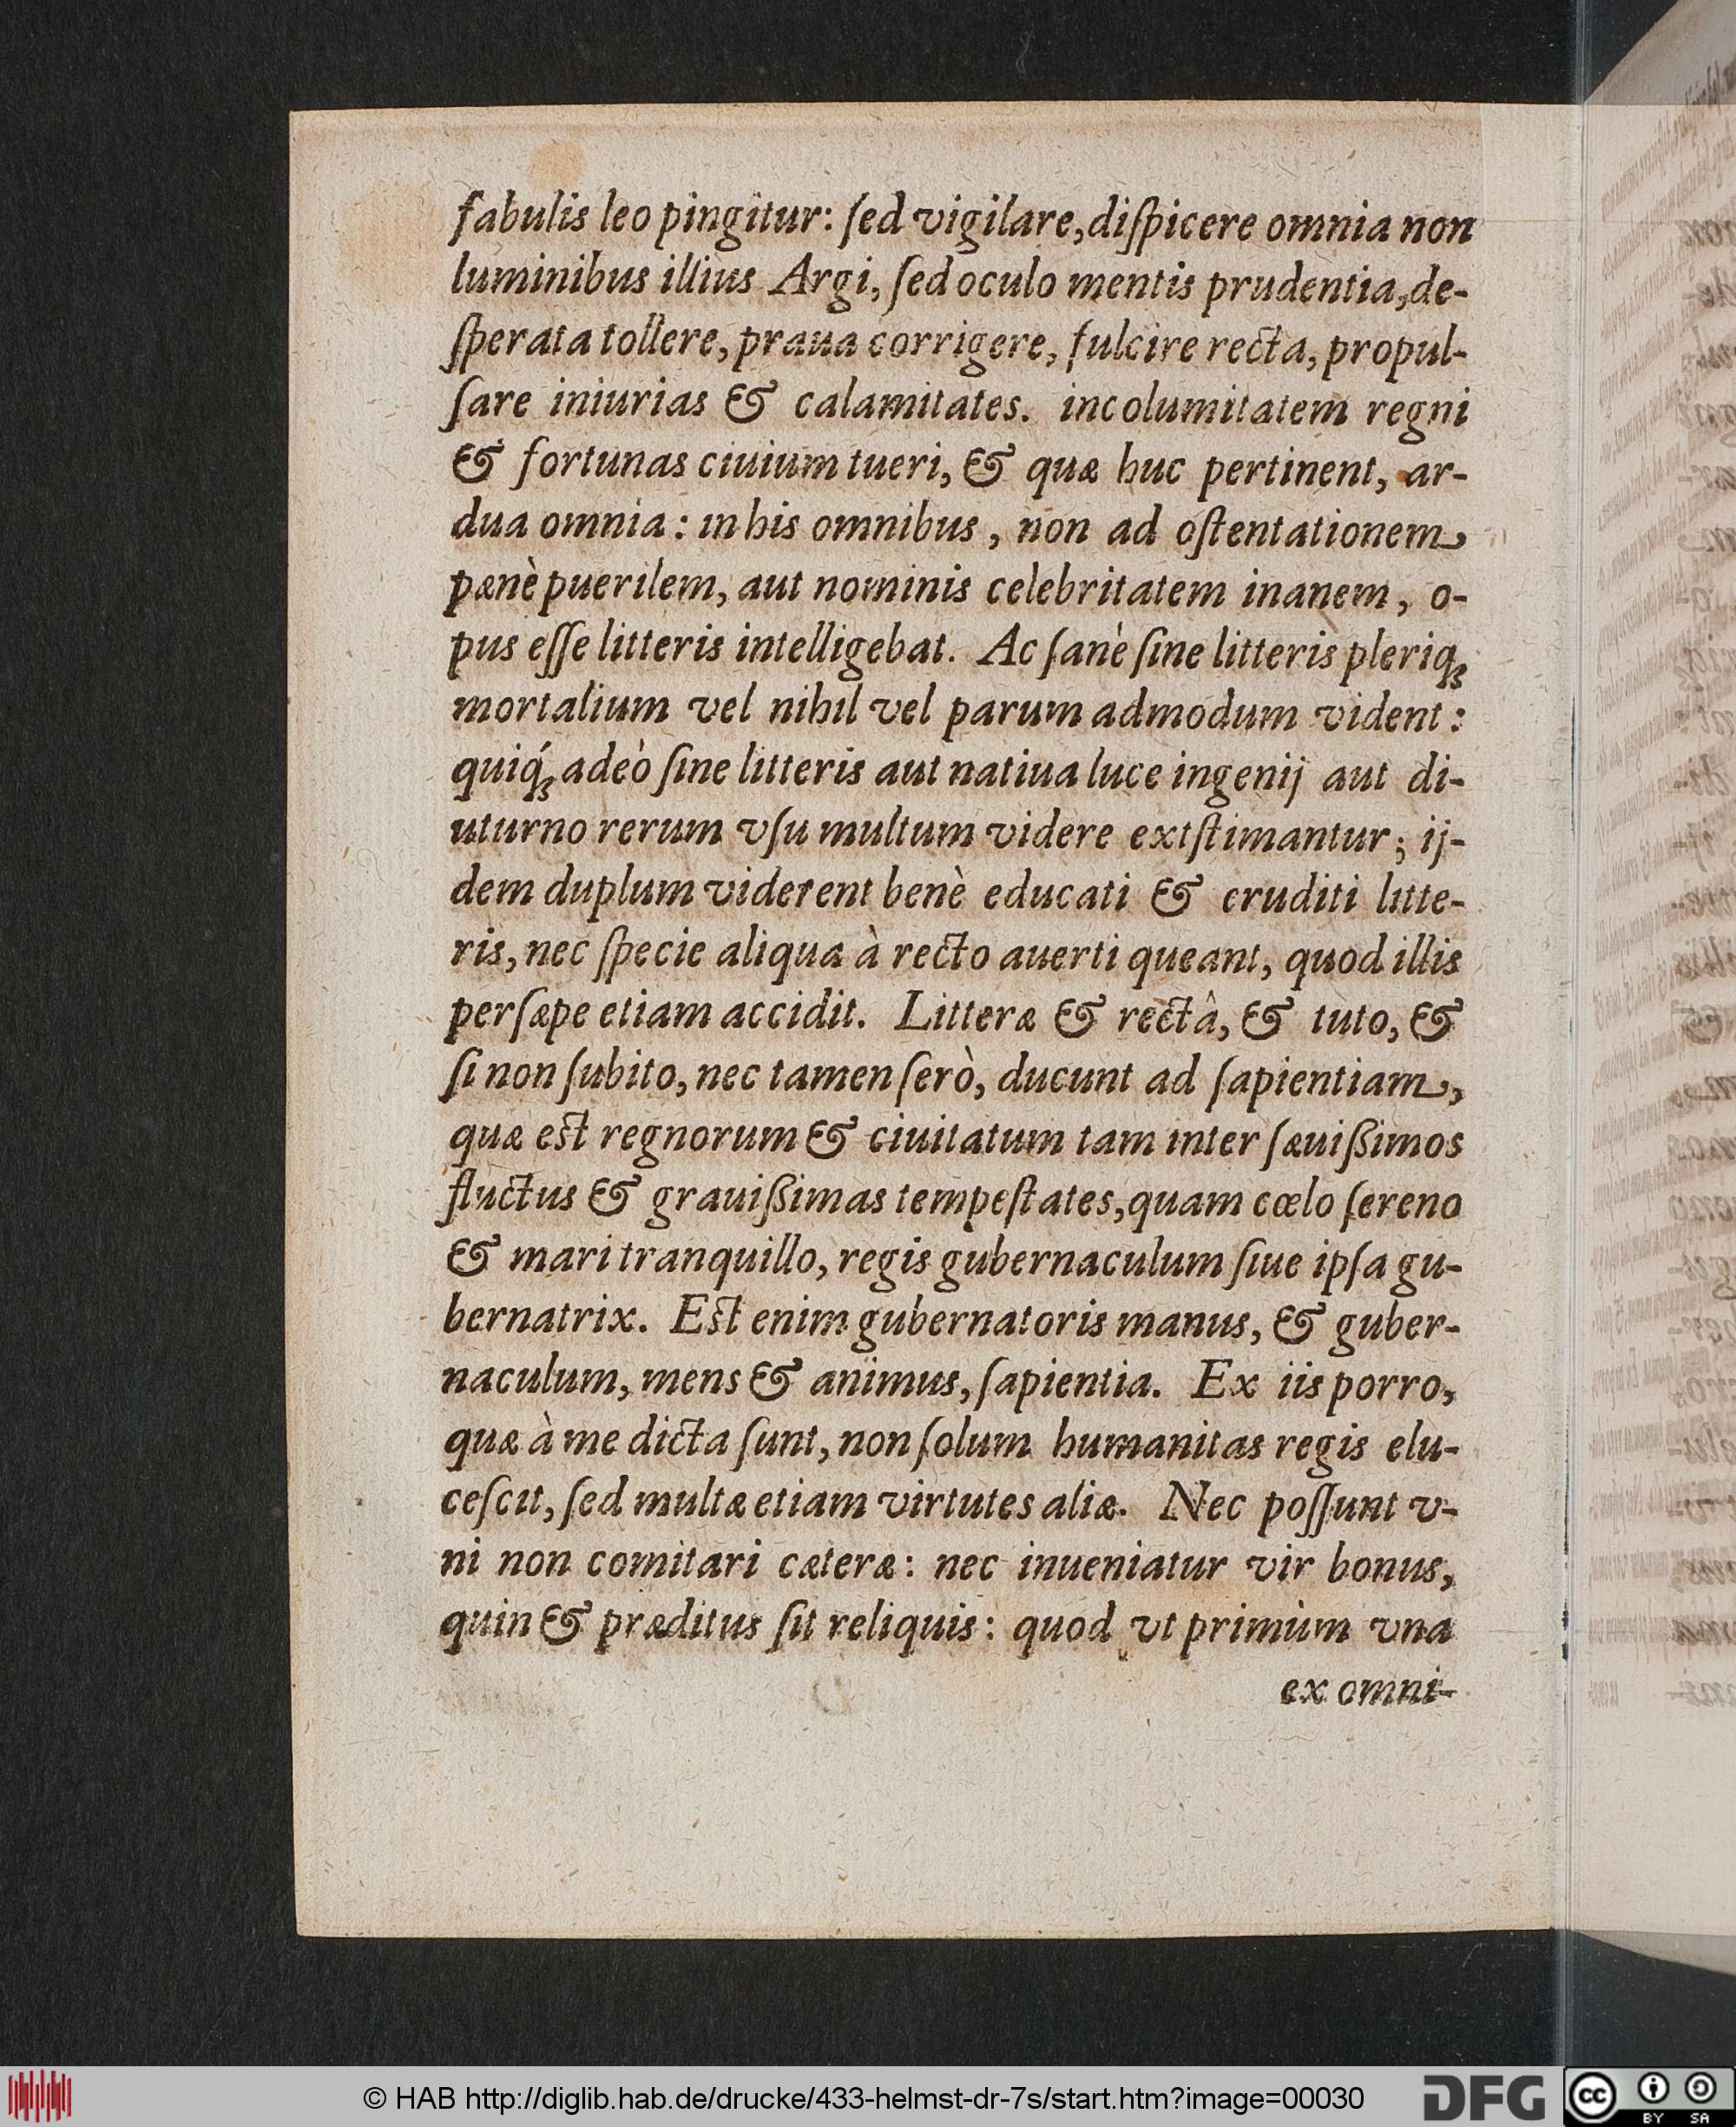 fabulis leo pingitur: ſed vigilare, diſpicere omnia non
luminibus illius Argi, ſed oculo mentis prudentia, de-
ſperata tollere, praua corrigere, fulcire recta, propul-
ſare iniurias & calamitates. incolumitatem regni
& fortunas ciuium tueri, & quæ huc pertinent, ar-
dua omnia: in his omnibus, non ad oſtentationem
pænè puerilem, aut nominis celebritatem inanem, o-
pus eſſe litteris intelligebat. Ac ſanè ſine litteris pleriq;
mortalium vel nihil vel parum admodum vident:
quiq́; adeò ſine litteris aut natiua luce ingenij aut di-
uturno rerum vſu multum videre extſtimantur; ij-
dem duplum viderent benè educati & eruditi litte-
ris, nec ſpecie aliqua à recto auerti queant, quod illis
perſæpe etiam accidit. Litteræ & rectâ, & tuto, &
ſi non ſubito, nec tamen ſerò, ducunt ad ſapientiam,
quæ est regnorum & ciuitatum tam inter ſæuißimos
fluctus & grauißimas tempeſtates, quam cœlo ſereno
& mari tranquillo, regis gubernaculum ſiue ipſa gu-
bernatrix. Est enim gubernatoris manus, & guber-
naculum, mens & animus, ſapientia. Ex iis porro,
quæ à me dicta ſunt, non ſolum humanitas regis elu-
ceſcit, ſed multæ etiam virtutes aliæ. Nec poſſunt v-
ni non comitari cæteræ: nec inueniatur vir bonus,
quin & præditus ſit reliquis: quod vt primùm vna
ex omni-
© HAB http://diglib.hab.de/drucke/433-helmst-dr-7s/start.htm?image=00030
DFG
cc
BY SA